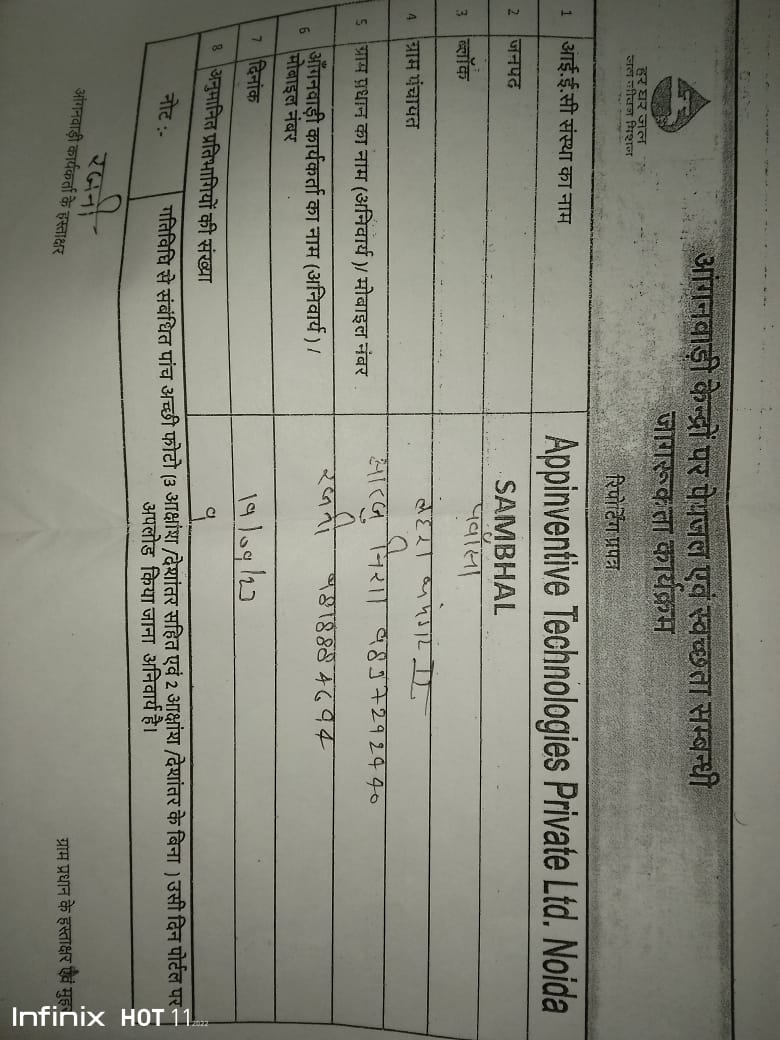 हर घर जल
जल जीवन मिशन
आंगनवाड़ी केन्द्रों पर पेयजल एवं स्वच्छता सम्बन्धी
जागरूकता कार्यक्रम
रिपोर्टिंग प्रपत्र
1 आई.ई.सी संस्था का नाम Appinventive Technologies Private Ltd. Noida
2 जनपद SAMBHAL
3 ब्लॉक पवांसा
4 ग्राम पंचायत II
5 ग्राम प्रधान का नाम (अनिवार्य)/ मोबाइल नंबर
6 आँगनवाड़ी कार्यकर्ता का नाम (अनिवार्य) /
मोबाइल नंबर
7 दिनांक
8 अनुमानित प्रतिभागियों की संख्या
नोट :- गतिविधि से संबंधित पांच अच्छी फोटो (3 आक्षांश /देशांतर सहित एवं 2 आक्षांश /देशांतर के बिना ) उसी दिन पोर्टल पर
अपलोड किया जाना अनिवार्य है।
आंगनवाड़ी कार्यकर्ता के हस्ताक्षर
ग्राम प्रधान के हस्ताक्षर एवं मुहर
Infinix HOT 11 2022